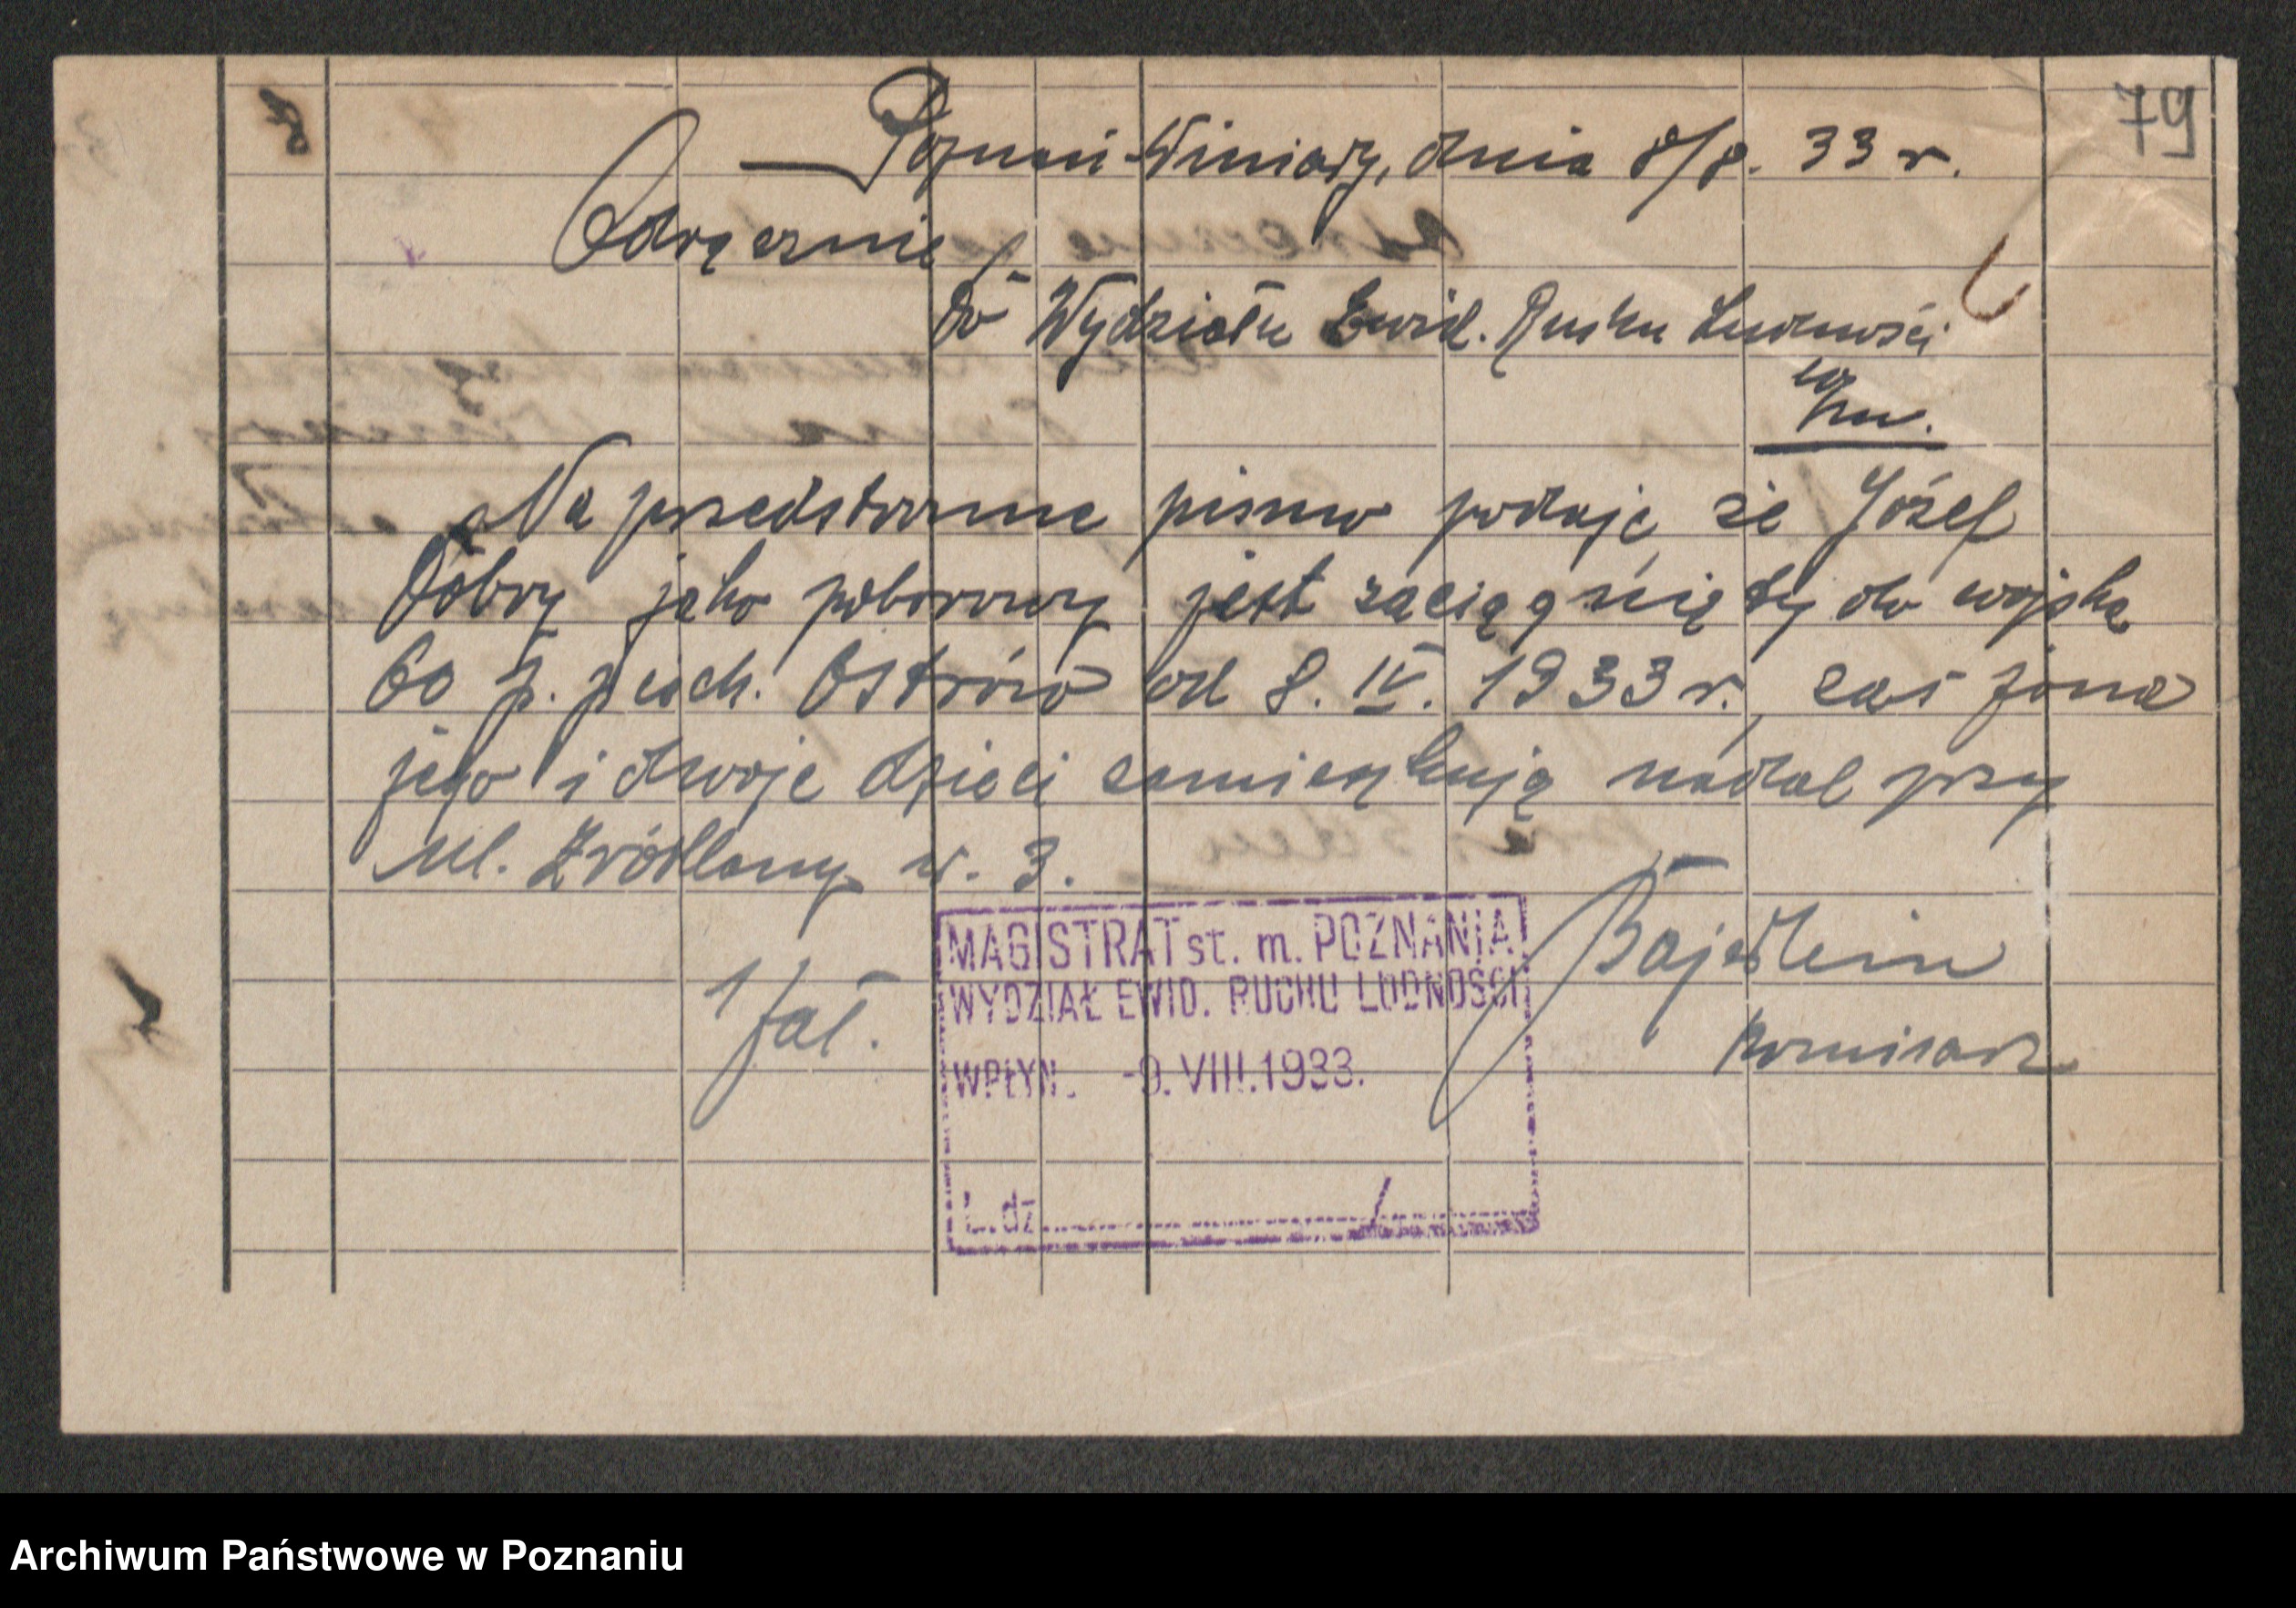 79
Poznań-Winiary, dnia 8/8. 33 r.
Odręcznie
Do Wydziału Ewid. Ruchu Ludności
w/m.
Na przedstronne pismo podaję że Józef
Dobry jako poborowy jest zaciągnięty do wojska
60 p. piech. Ostrów od 8. IV. 1933 r., zaś żona
jego i dwoje dzieci zamieszkują nadal przy
ul. Źródlany n. 3.
1 zał.
Bajerlein
komisarz
MAGISTRAT st. m. POZNANIA
WYDZIAŁ EWID. RUCHU LUDNOŚCI
WPŁYN. -9. VIII. 1933.
L. dz. /
Archiwum Państwowe w Poznaniu